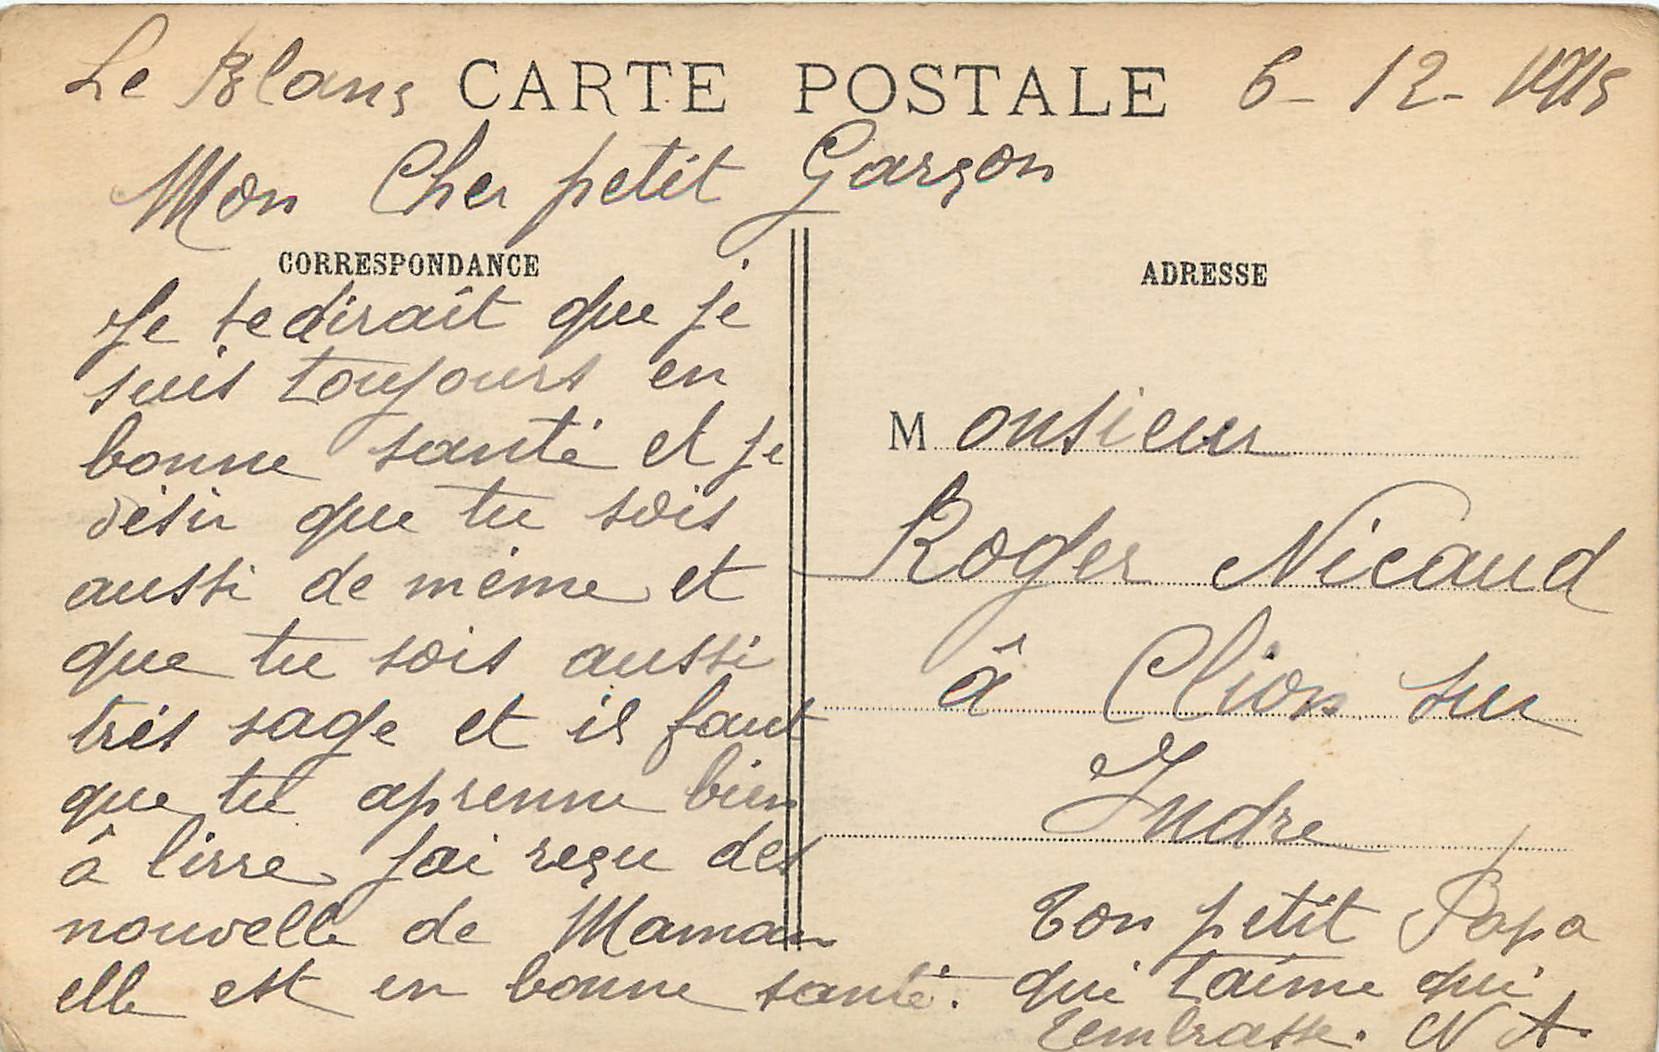 Le Blanç CARTE POSTALE 6-12-1915
Mon Cher petit Garçon
CORRESPONDANCE
Je tedirait que je
suis toujours en
bonne santé et je
désir que tu sois
aussi de mème et
que tu sois aussi
trés sage et il faut
que tu aprenne bien
à lirre, j'ai reçu des
nouvelle de Maman
elle est en bonne santé.
ADRESSE
Monsieur
Roger Nicaud
à Clion sur
Indre
Ton petit Papa
qui t'aime qui
t'embrasse. N A.